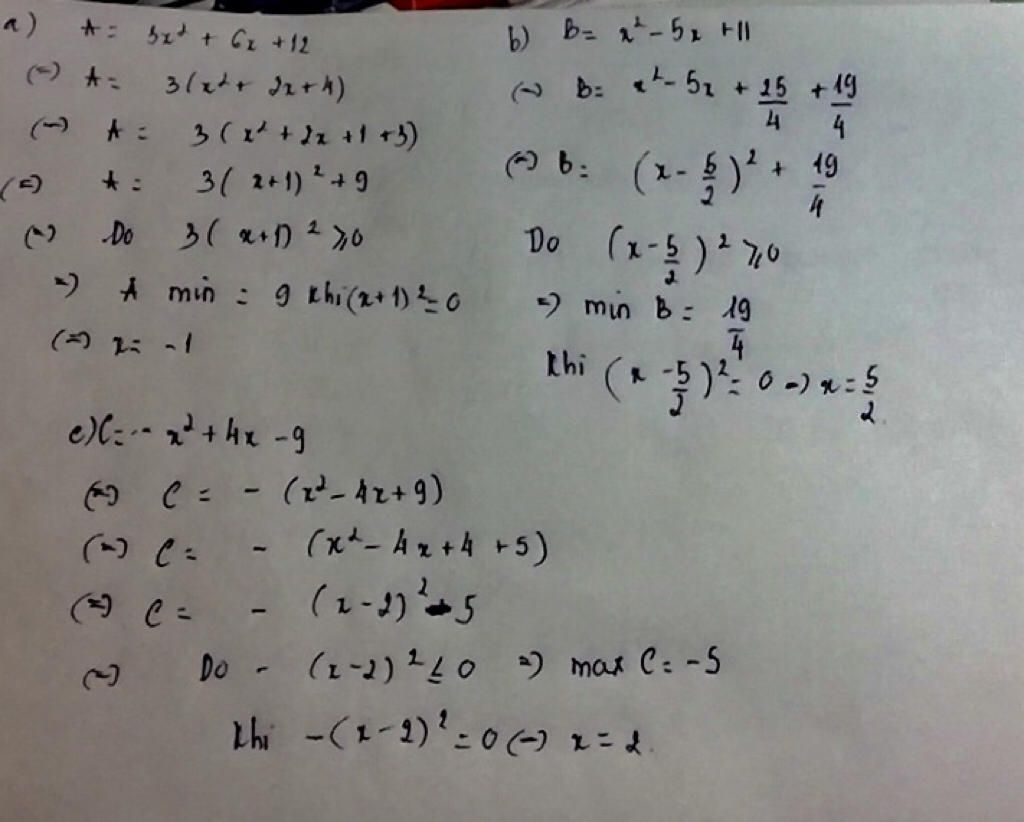 a) A = 3x² + 6x + 12
(=) A = 3(x² + 2x + 4)
(=) A = 3(x² + 2x + 1 + 3)
(=) A = 3(x+1)² + 9
(=) Do 3(x+1)² ≥ 0
=) A min = 9 khi (x+1)² = 0
(=) x = -1
b) B = x² - 5x + 11
(=) B = x² - 5x + 25/4 + 19/4
(=) B = (x - 5/2)² + 19/4
Do (x - 5/2)² ≥ 0
=) min B = 19/4
khi (x - 5/2)² = 0 =) x = 5/2.
c) C = - x² + 4x - 9
(=) C = - (x² - 4x + 9)
(=) C = - (x² - 4x + 4 + 5)
(=) C = - (x - 2)² - 5
(=) Do - (x - 2)² ≤ 0 =) max C = -5
khi -(x - 2)² = 0 (=) x = 2.